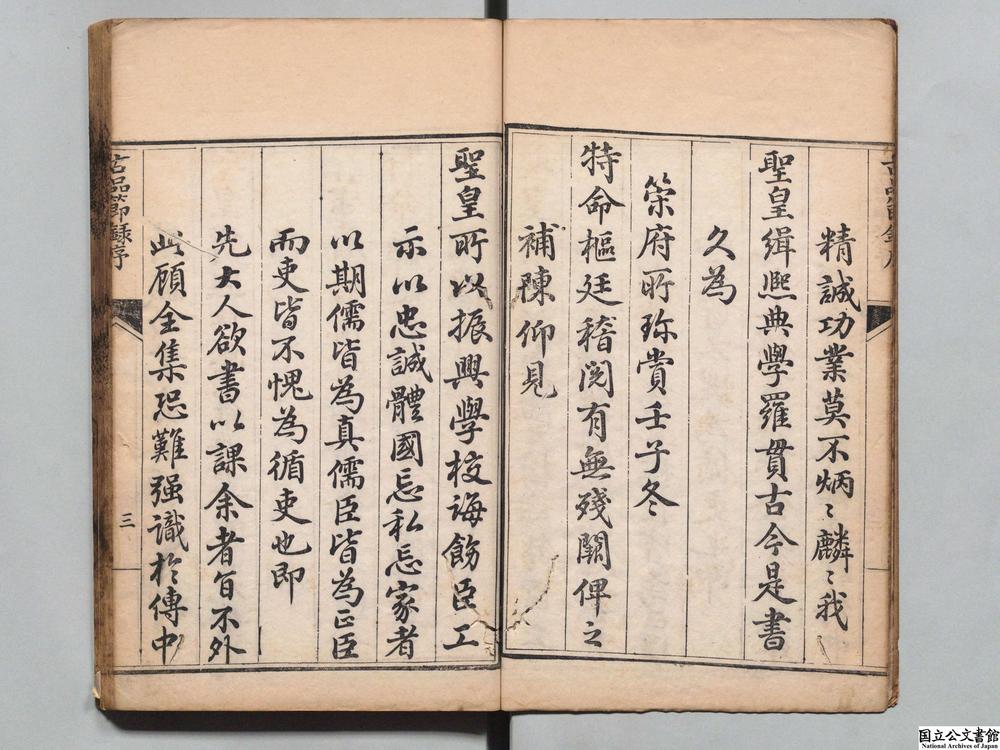 精誠功業莫不炳〻麟〻我
聖皇緝熙典學羅貫古今是書
久為
策府所珍賞壬子冬
特命樞廷稽閱有無殘闕俾之
補陳仰見
聖皇所以振興學校誨飭臣工
示以忠誠體國忘私忘家者
以期儒皆為真儒臣皆為正臣
而吏皆不愧為循吏也即
先大人欲書以課余者旨不外
此顧全集恐難强識於傳中
古品節錄序
三
国立公文書館
National Archives of Japan